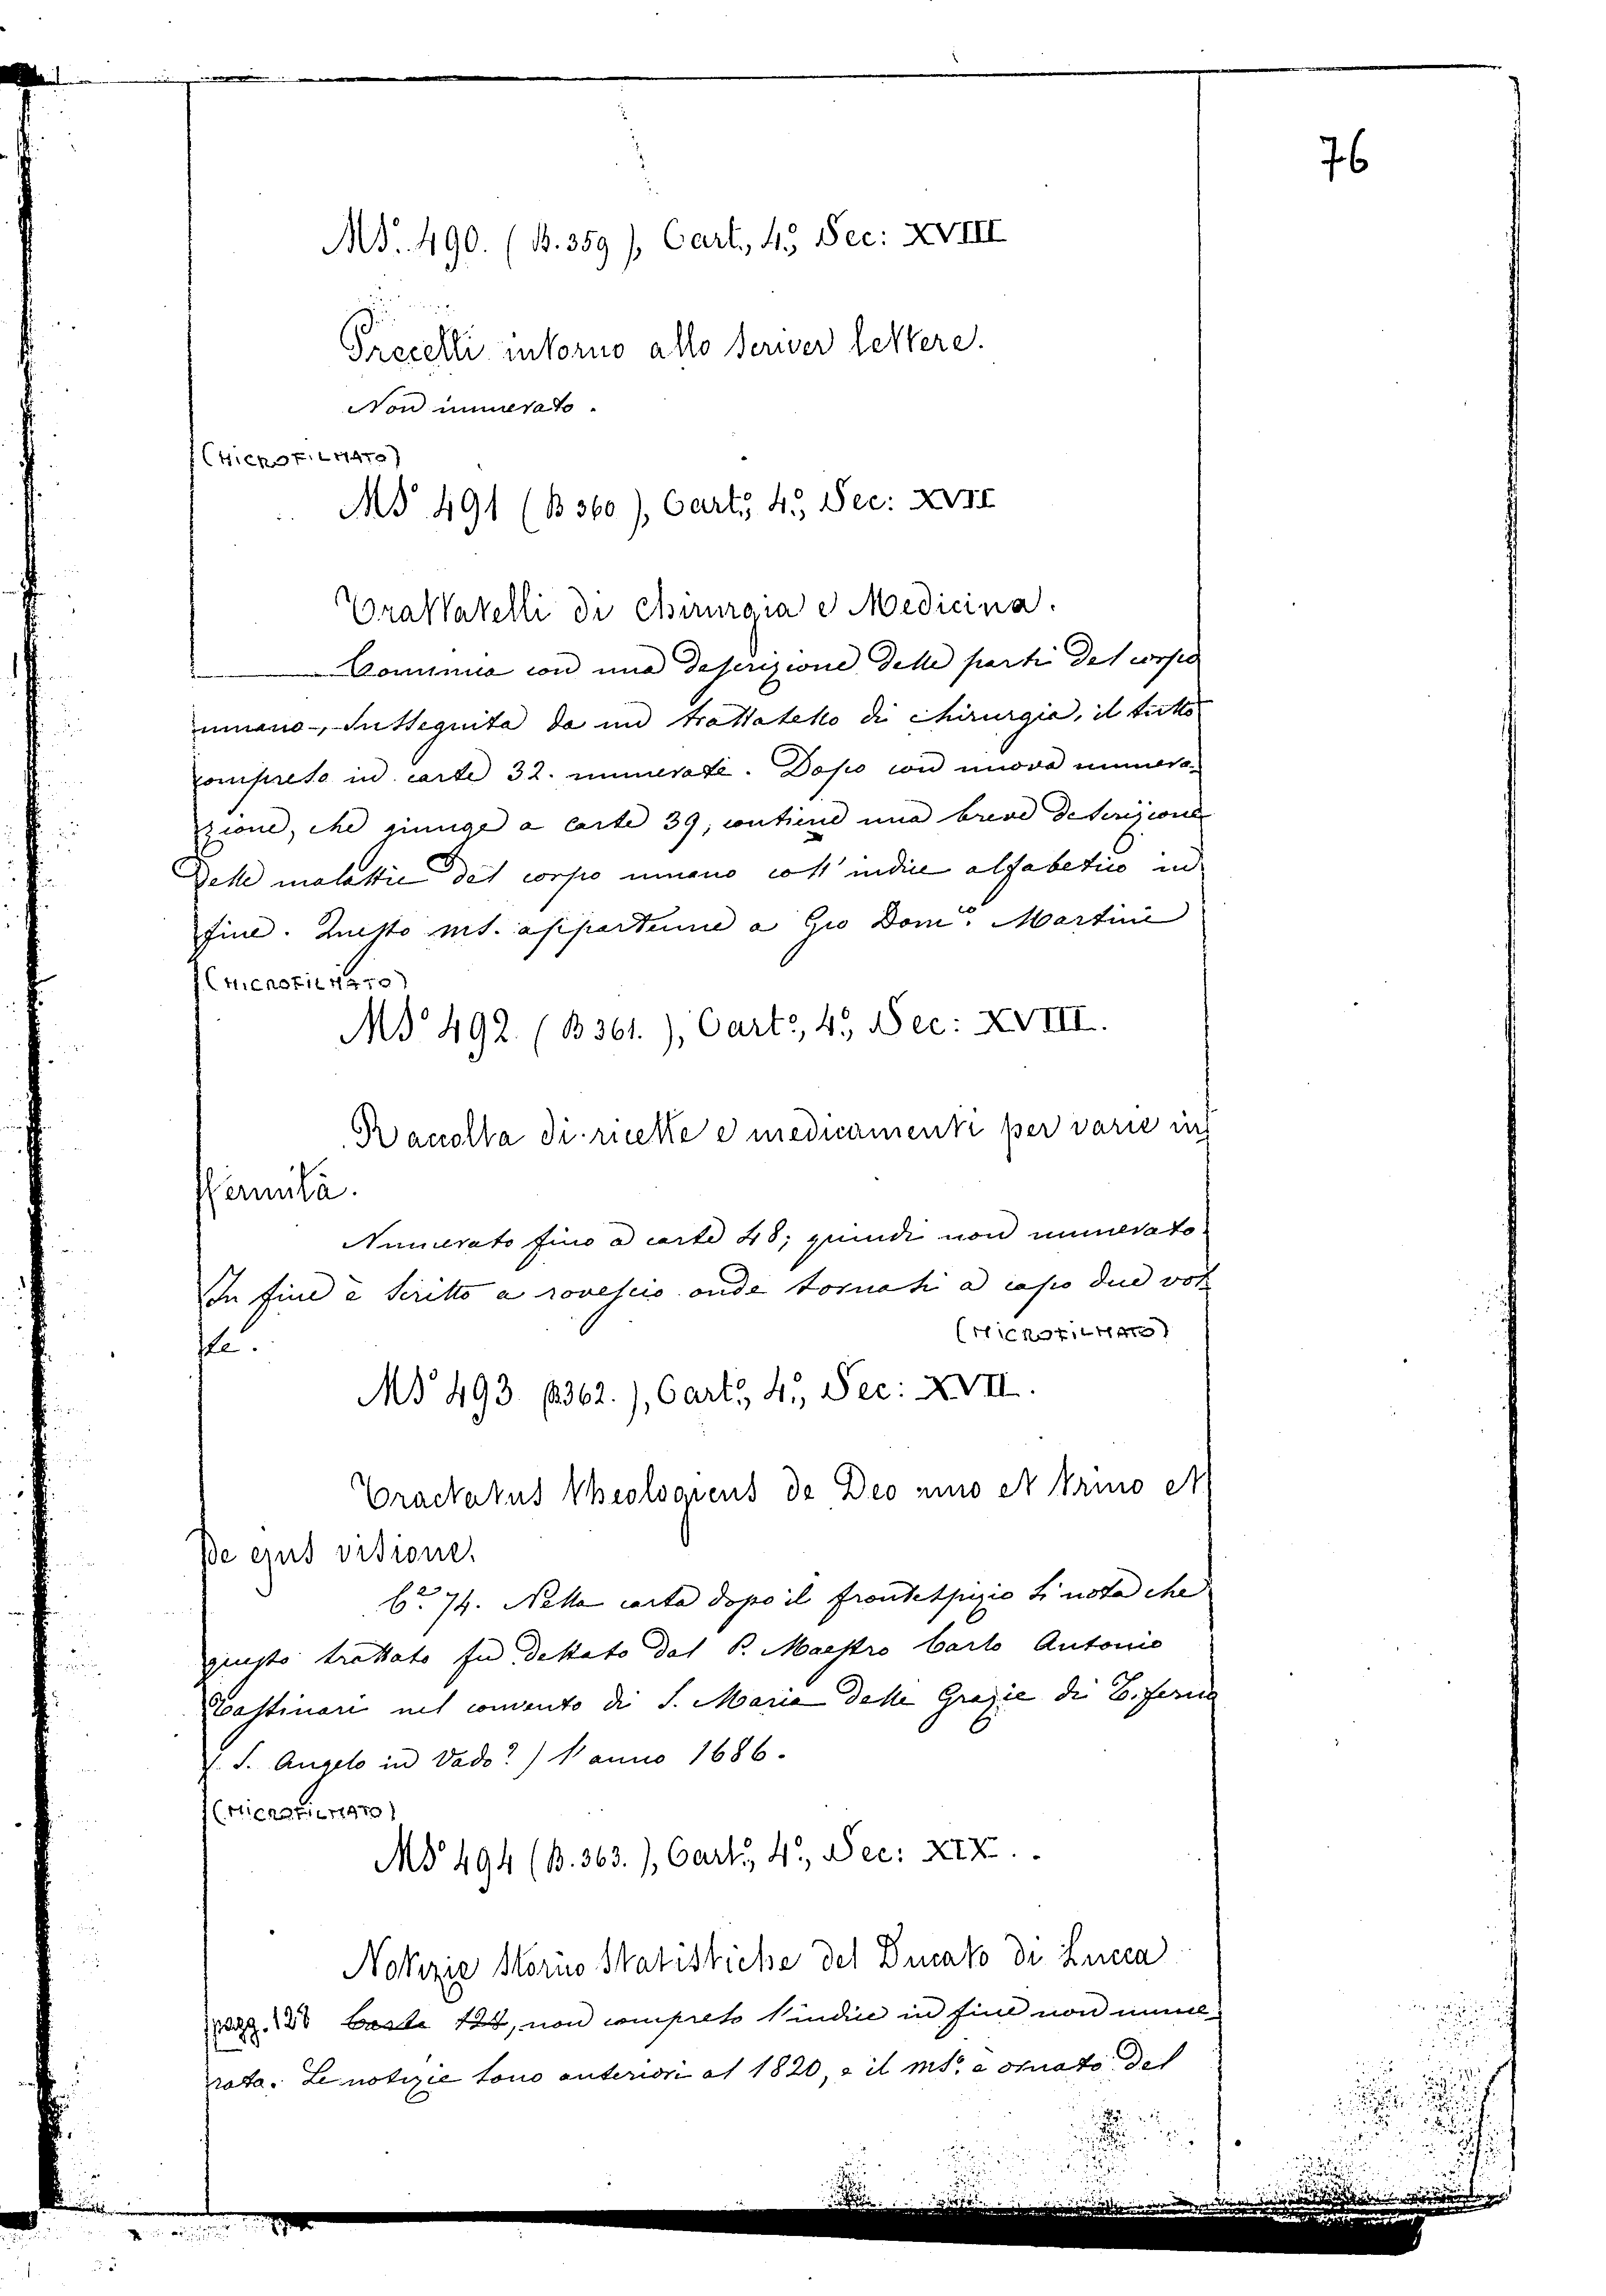 76
MS. 490. (B. 359), Cart., 4º, Sec: XVIII
Precetti intorno allo scriver lettere.
Non numerato.
(MICROFILMATO)
MSº 491 (B 360), Cartº, 4º, Sec: XVII
Trattatelli di Chirurgia e Medicina.
Comincia con una descrizione delle parti del corpo
umano, susseguita da un trattatello di chirurgia, il tutto
compreso in carte 32. numerate. Dopo con nuova numera-
zione, che giunge a carte 39, contiene una breve descrizione
delle malattie del corpo umano coll'indice alfabetico in
fine. Questo ms. appartenne a Gio Domº. Martini
(MICROFILMATO)
MSº 492. (B 361.), Cartº, 4º, Sec: XVIII.
Raccolta di ricette e medicamenti per varie in
fermità.
Numerato fino a carte 48; quindi non numerato
In fine è scritto a rovescio onde tornasi a capo due vol
te.
(MICROFILMATO)
MSº 493. (B362.), Cartº, 4º, Sec: XVII.
Tractatus theologicus de Deo uno et trino et
de ejus visione.
Cº 74. Nella carta dopo il frontespizio si nota che
questo trattato fu dettato dal P. Maestro Carlo Antonio
Castinari nel convento di S. Maria delle Grazie di Tiferno
(S. Angelo in Vado?) l'anno 1686.
(MICROFILMATO)
MSº 494 (B. 363.), Cartº, 4º, Sec: XIX.
Notizie Storico Statistiche del Ducato di Lucca
pagg. 128 Carte 124, non compreso l'indice in fine non nume-
rato. Le notizie sono anteriori al 1820, e il msº. è ornato del